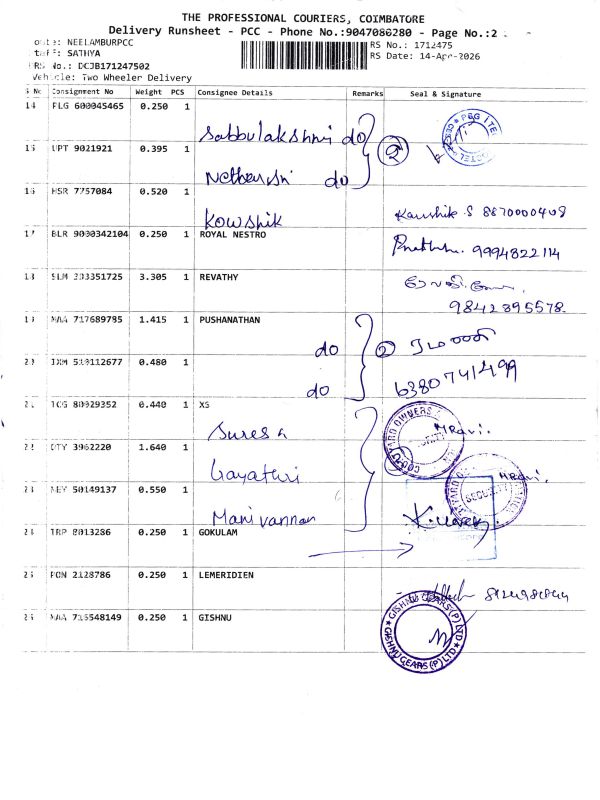 THE PROFESSIONAL COURIERS, COIMBATORE
Delivery Runsheet - PCC - Phone No.:9047080280 - Page No.:2
NEELAMBURPCC
SATHYA
RS No.: 1712475
RS Date: 14-Apr-2026
RS No.: DCJB171247502
Vehicle: Two Wheeler Delivery
Consignment No Weight PCS Consignee Details Remarks Seal & Signature
14 FLG 600045465 0.250 1
Sabbulakshmi do
15 UPT 9021921 0.395 1
do
2
16 HSR 7757084 0.520 1
Kowshik
Kaushik S 8870000408
17 BLR 9000342104 0.250 1 ROYAL NESTRO
9994822114
18 SLM 1.415 3.305 1 REVATHY
9842895578
19 MAA 717689785 1.415 1 PUSHANATHAN
do
2
20 IXM 510112677 0.480 1
do
6380741499
21 TCG 80929352 0.440 1 XS
Suresh
MRavi.
22 OTY 3962220 1.640 1
Gayathri
MRavi.
SECURITY
23 50149137 0.550 1
Manivannan
24 TRP 8013286 0.250 1 GOKULAM
25 PON 2128786 0.250 1 LEMERIDIEN
26 MAA 715548149 0.250 1 GISHNU
GISHNU GEARS (P) LTD
GISHNU GEARS (P) LTD